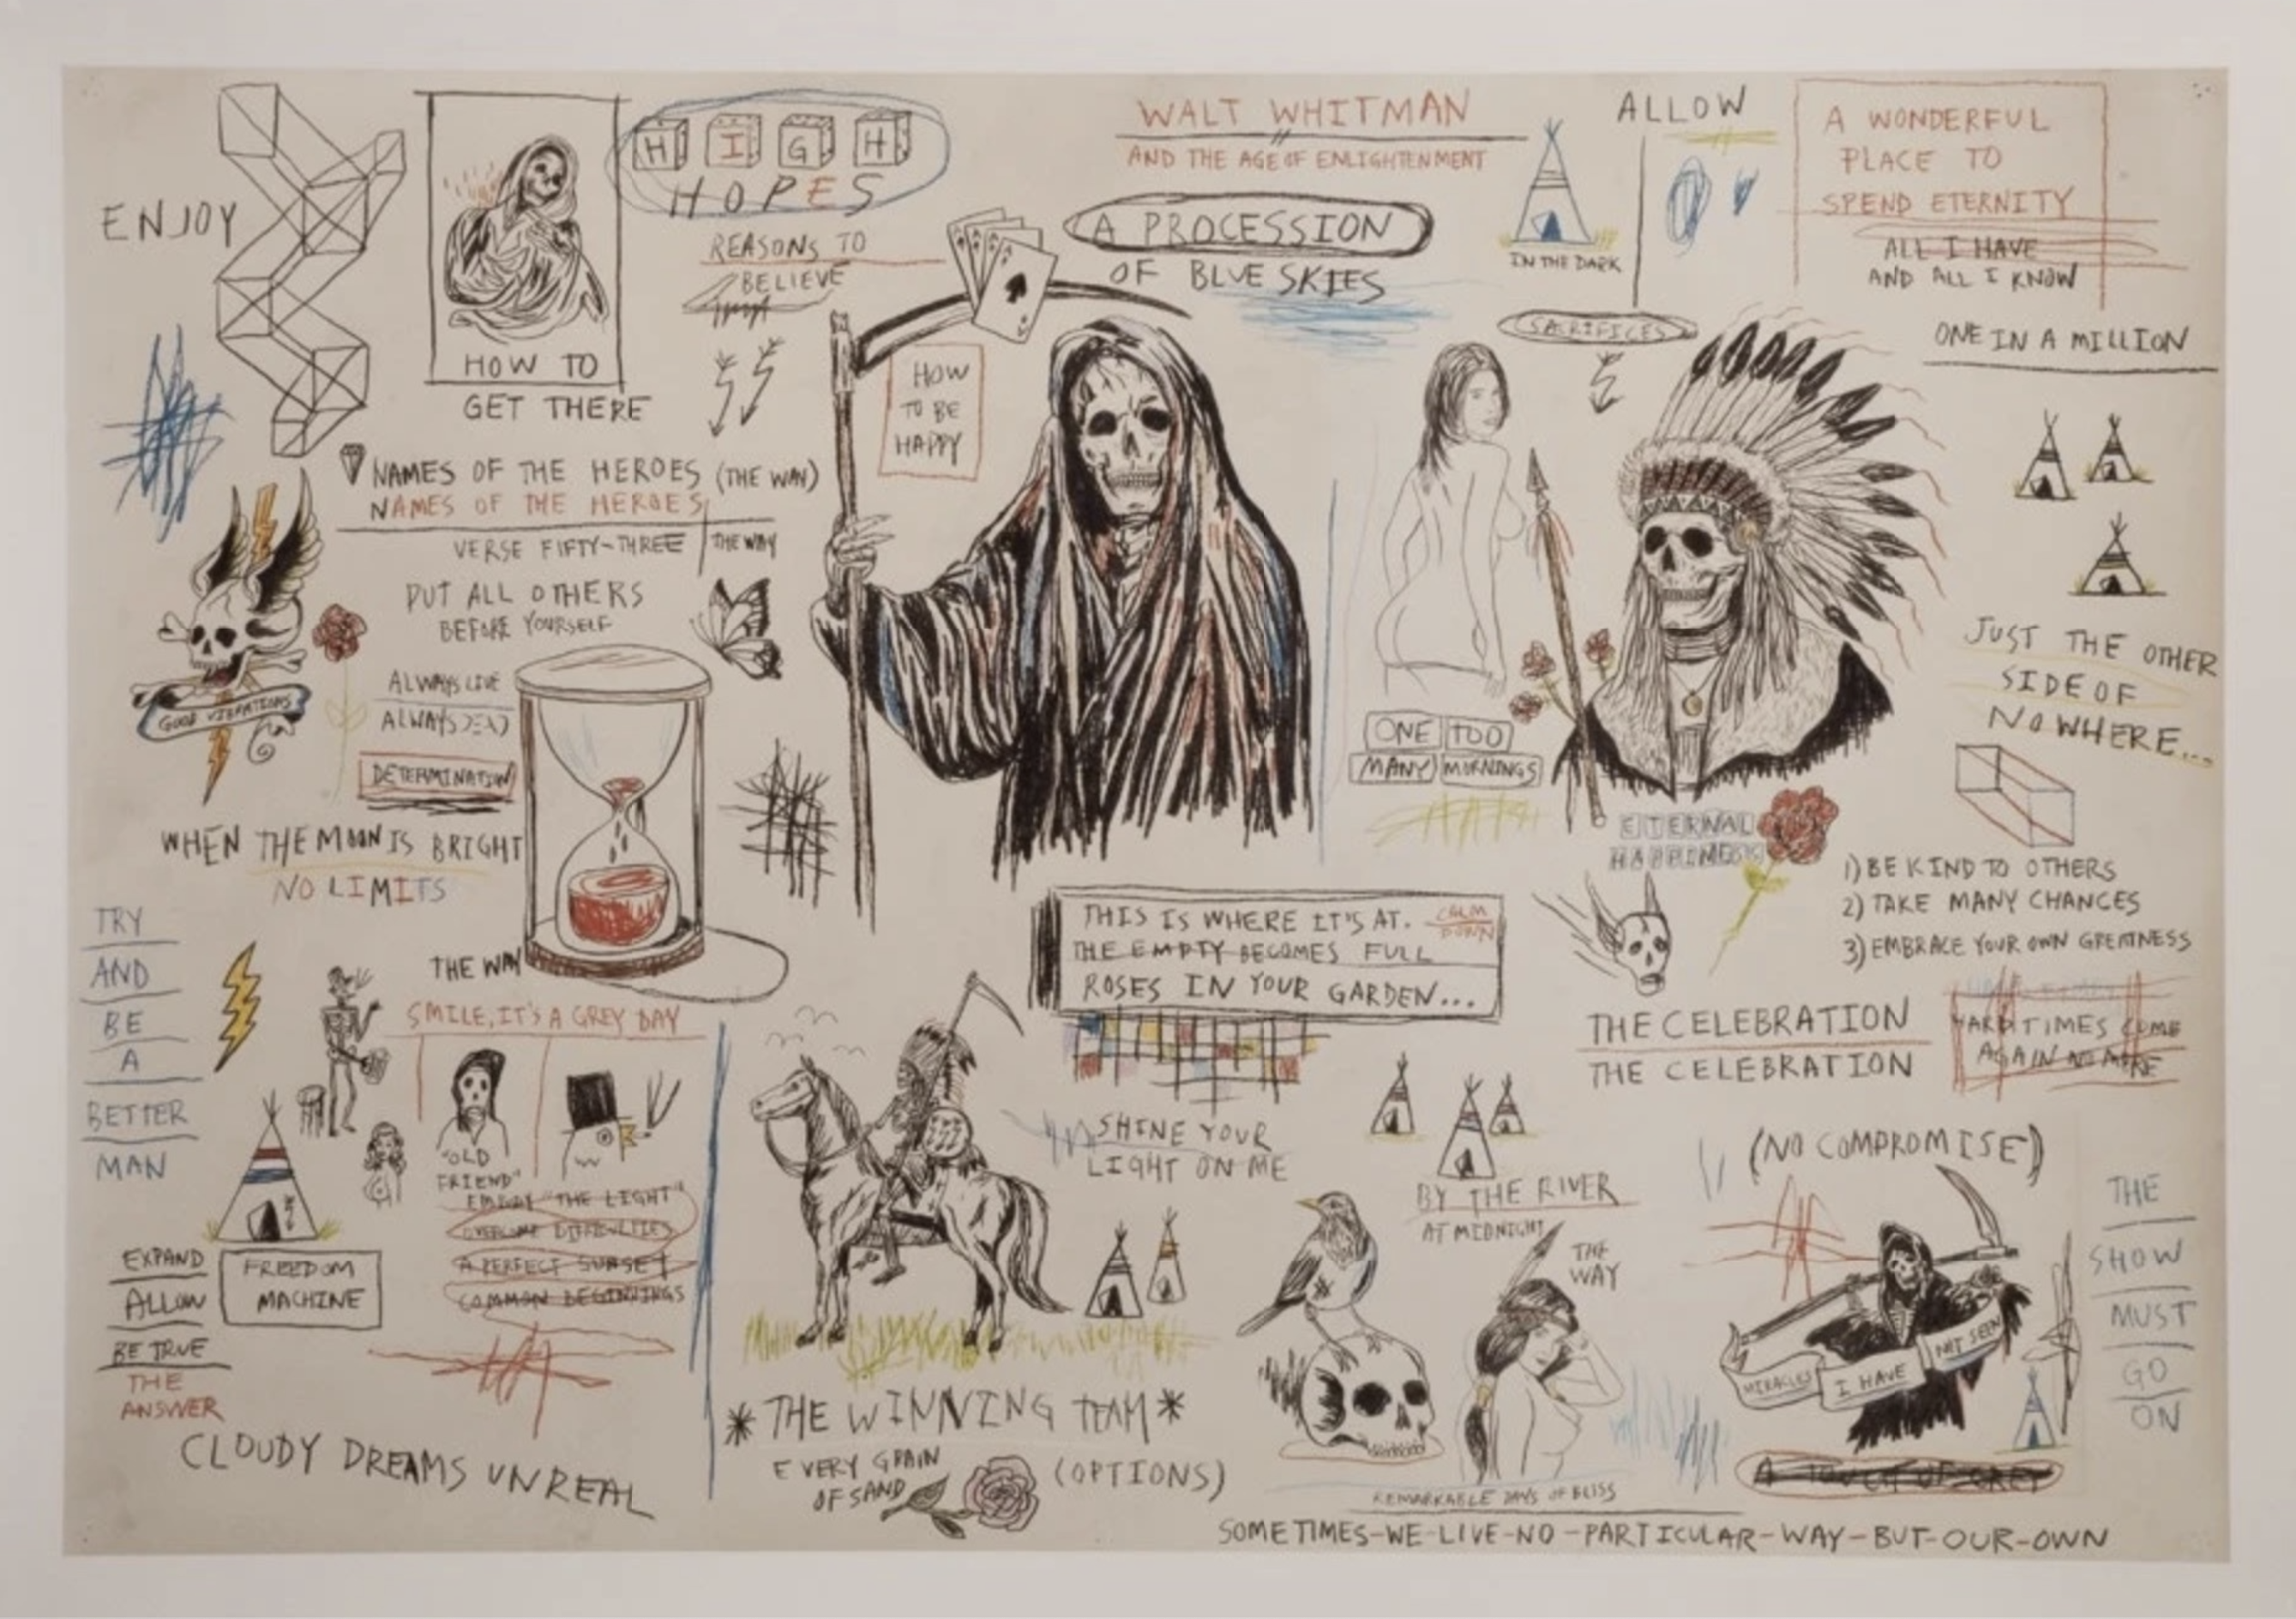 ENJOY
HOW TO
GET THERE
HIGH
HOPES
REASONS TO
BELIEVE
WALT WHITMAN
AND THE AGE OF ENLIGHTENMENT
A PROCESSION
OF BLUE SKIES
IN THE DARK
ALLOW
A WONDERFUL
PLACE TO
SPEND ETERNITY
ALL I HAVE
AND ALL I KNOW
ONE IN A MILLION
SACRIFICES
HOW
TO BE
HAPPY
NAMES OF THE HEROES (THE WAY)
NAMES OF THE HEROES
VERSE FIFTY-THREE THE WAY
PUT ALL OTHERS
BEFORE YOURSELF
ALWAYS LIVE
ALWAYS DEAD
DETERMINATION
GOOD VIBRATIONS
WHEN THE MOON IS BRIGHT
NO LIMITS
JUST THE OTHER
SIDE OF
NOWHERE...
ONE TOO
MANY MORNINGS
ETERNAL
HAPPINESS
1) BE KIND TO OTHERS
2) TAKE MANY CHANCES
3) EMBRACE YOUR OWN GREATNESS
TRY
AND
BE
A
BETTER
MAN
THE WAY
SMILE, IT'S A GREY DAY
"OLD
FRIEND"
EMBODY "THE LIGHT"
OVERCOME DIFFICULTIES
A PERFECT SUNSET
COMMON BEGINNINGS
THIS IS WHERE IT'S AT. CALM
DOWN
THE EMPTY BECOMES FULL
ROSES IN YOUR GARDEN...
THE CELEBRATION
THE CELEBRATION
HARD TIMES COME
AGAIN NO MORE
SHINE YOUR
LIGHT ON ME
BY THE RIVER
AT MIDNIGHT
THE
WAY
(NO COMPROMISE)
MIRACLES I HAVE NOT SEEN
THE
SHOW
MUST
GO
ON
EXPAND
ALLOW
BE TRUE
THE
ANSWER
FREEDOM
MACHINE
CLOUDY DREAMS UNREAL
*THE WINNING TEAM*
EVERY GRAIN
OF SAND
(OPTIONS)
A TOUCH OF GREY
REMARKABLE DAYS OF BLISS
SOMETIMES-WE-LIVE-NO-PARTICULAR-WAY-BUT-OUR-OWN